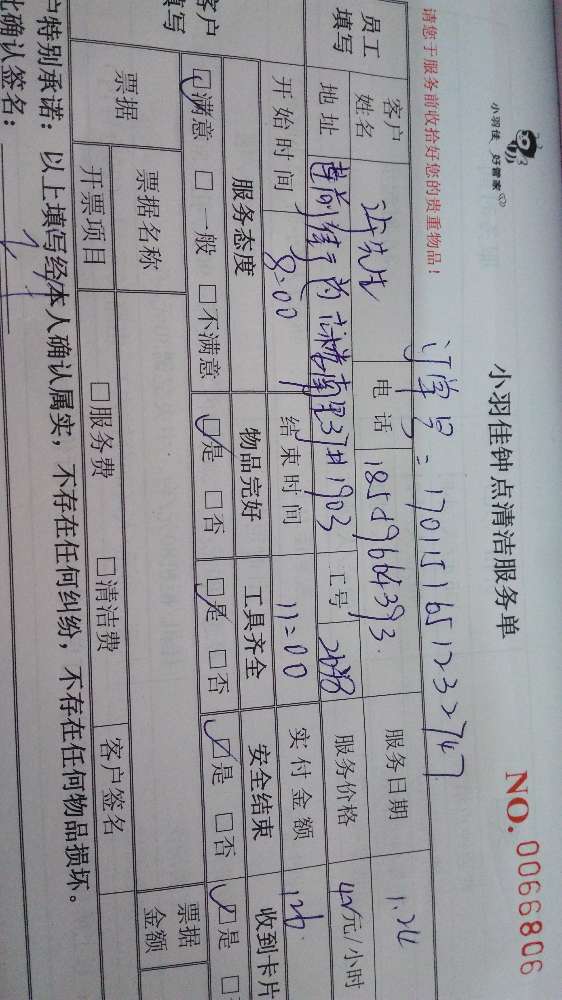 小羽佳 好管家
小羽佳钟点清洁服务单
NO. 0066806
请您于服务前收拾好您的贵重物品！
订单号：1701151651232747
员工填写
客户姓名
电话 18559664393
服务日期 1.24
地址
工号
服务价格 元/小时
开始时间 8:00
结束时间 11:00
实付金额 126
服务态度 物品完好 工具齐全 安全结束 收到卡片
满意 □ 一般 □ 不满意 是 □ 否 是 □ 否 是 □ 否 是
票据 票据名称 票据金额
开票项目 □ 服务费 □ 清洁费 客户签名
特别承诺：以上填写经本人确认属实，不存在任何纠纷，不存在任何物品损坏。
确认签名：